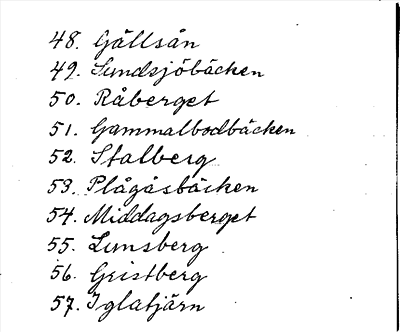 48. Gällsån
49. Sundsjöbäcken
50. Råberget
51. Gammalbodbäcken
52. Stalberg
53. Plågåsbäcken
54. Middagsberget
55. Lunsberg
56. Geistberg
57. Iglatjärn